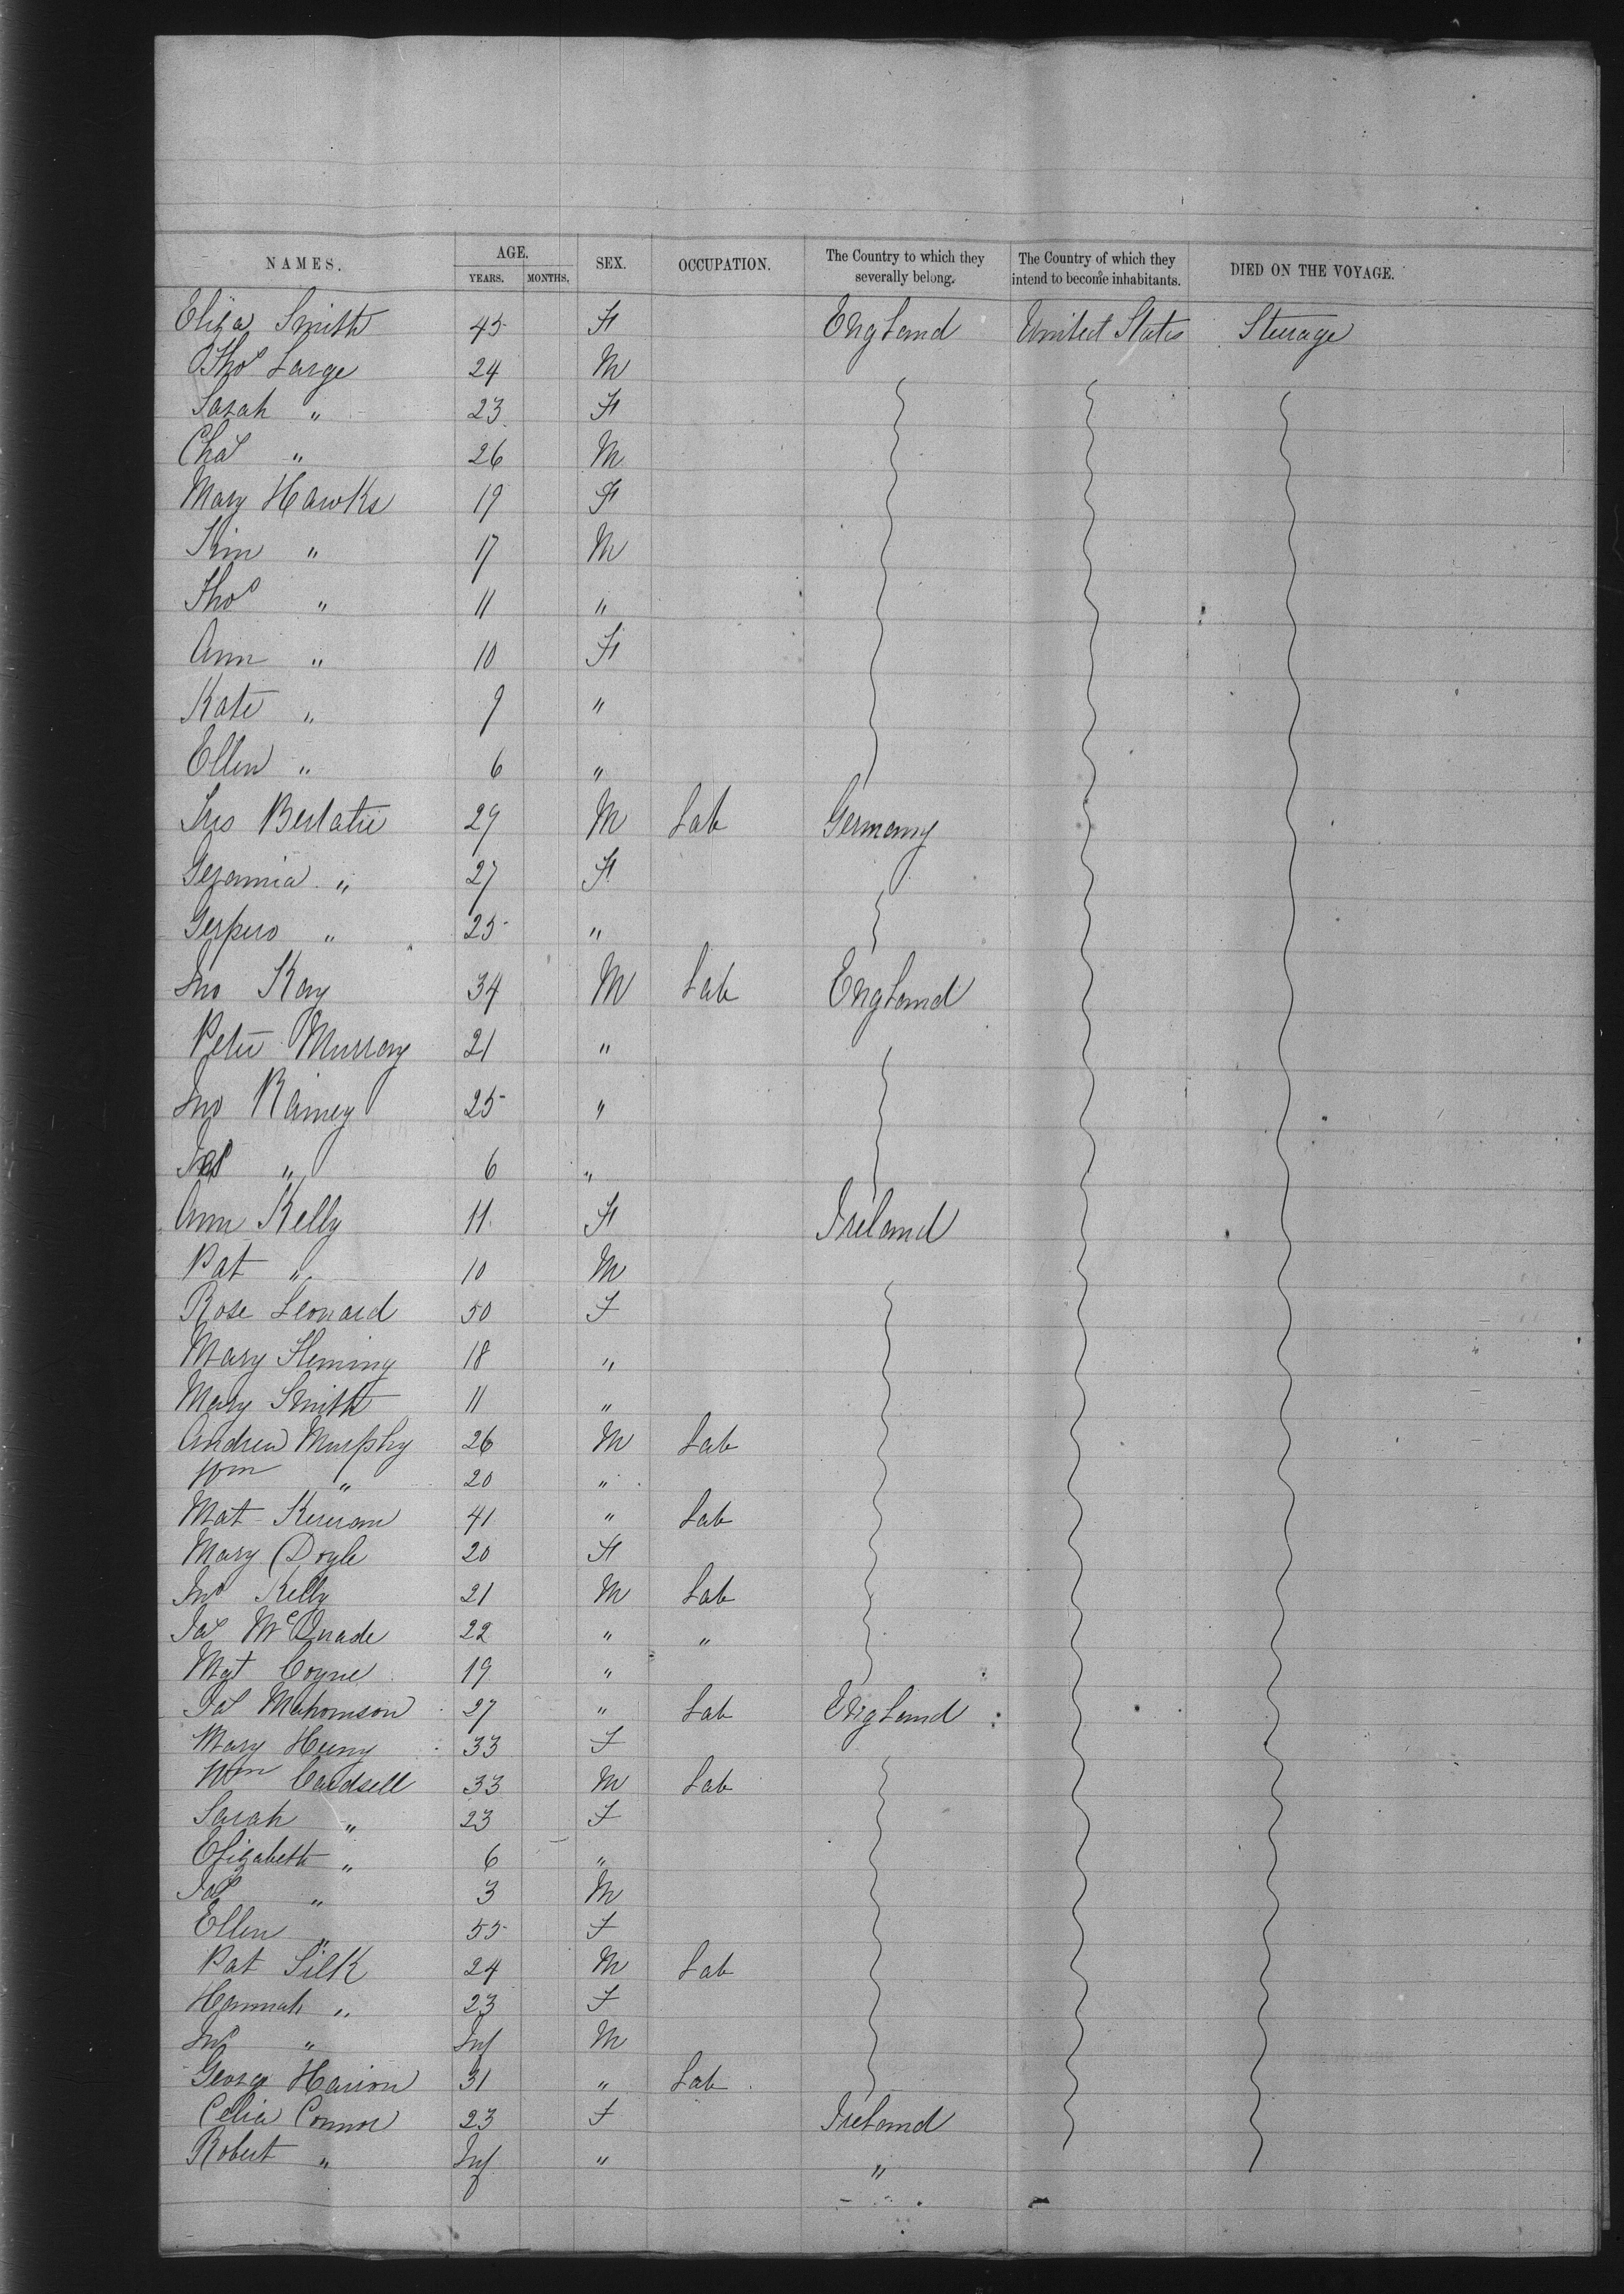 NAMES. AGE. YEARS. MONTHS. SEX. OCCUPATION. The Country to which they severally belong. The Country of which they intend to become inhabitants. DIED ON THE VOYAGE.
Eliza Smith 45 F England United States Steerage
Thos Large 24 M
Sarah " 23 F
Chas " 26 M
Mary Hawks 19 F
Kim " 17 M
Thos " 11 "
Ann " 10 F
Kate " 9 "
Ellen " 6 "
Berlatie 29 M Lab Germany
" 27 F
" 25 "
Jno Kay 34 M Lab England
Peter Murray 21 "
Jno Rainey 25 "
Jas " 6 "
Ann Kelly 11 F Ireland
Pat " 10 M
Rose Leonard 50 F
Mary Fleming 18 "
Mary Smith 11 "
Andrew Murphy 26 M Lab
Wm " 20 "
Mat 41 " Lab
Mary Doyle 20 F
Jno Kelly 21 M Lab
Jas McQuade 22 " "
Mgt Coyne 19 "
Jas 27 " Lab England
Mary 33 F
Wm Cardsell 33 M Lab
Sarah " 23 F
Elizabeth " 6 "
Jas " 3 M
Ellen " 55 F
Pat Silk 24 M Lab
Hannah " 23 F
Jno " Inf M
George 31 " Lab
Celia Connor 23 F Ireland
Robert " Inf " "